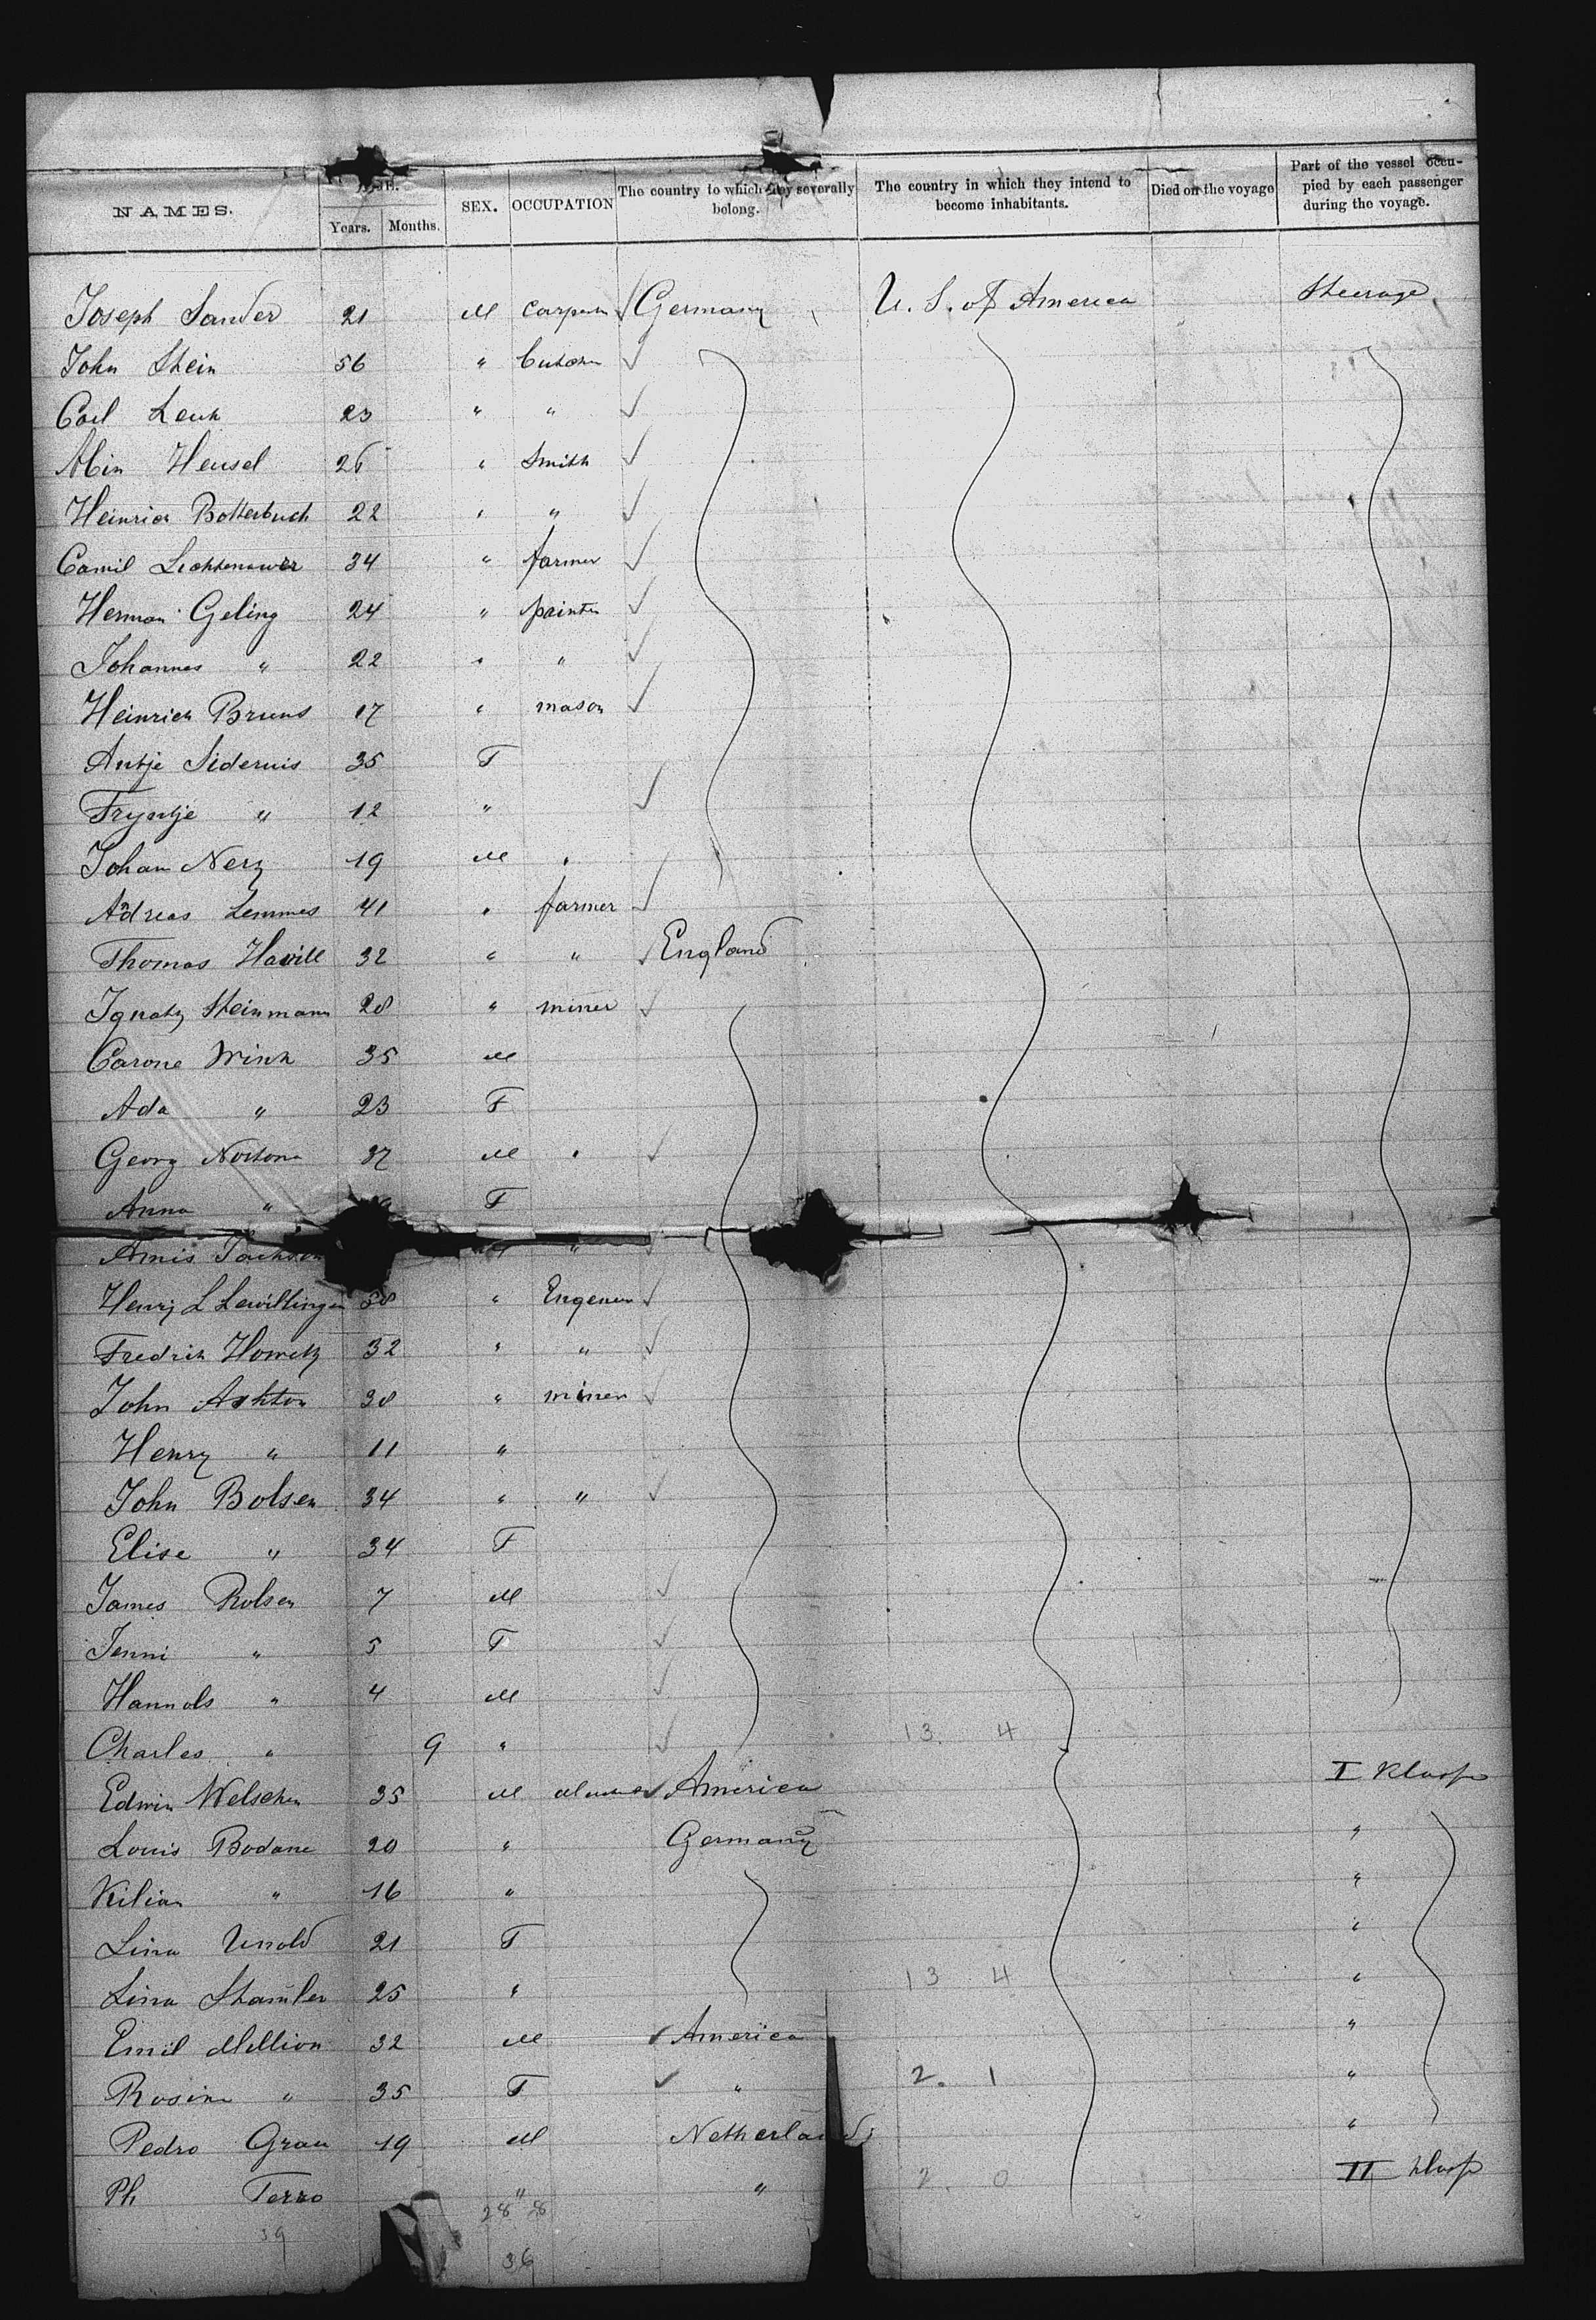 NAMES. AGE. Years. Months. SEX. OCCUPATION The country to which they severally belong. The country in which they intend to become inhabitants. Died on the voyage Part of the vessel occupied by each passenger during the voyage.
Joseph Sander 21 M Germany U. S. of America Steerage
John Stein 56 "
Carl 23 " "
Albin Hensel 26 " Smith
Heinrich Botterbuch 22 " "
Camil 34 " farmer
Herman Geling 24 " painter
Johannes " 22 " "
Heinrich Bruns 17 " mason
Antje 35 F
Tryntje " 12 "
Johan Nerz 19 M
Adreas Lemmes 41 " farmer
Thomas Havill 32 " " England
Ignatz Steinmann 28 " miner
Carone Wink 35 M
Ada " 23 F
Georg 37 M
Anna " F
Amis "
Henry L 38 "
Fredrik 32 " "
John Ashton 38 " miner
Henry " 11 "
John Bolsen 34 " "
Elise " 34 F
James Rolsen 7 M
Jenni " 5 F
Hannols " 4 M
Charles " 9 " 13. 4
Edwin Welschen 35 M America I
Louis Bodane 20 " Germany "
Kilian " 16 " "
Lina Unold 21 F "
Lina 25 " 13 4 "
Emil Million 32 M America "
Rosina " 35 F " 2. 1 "
Pedro Grau 19 M Netherlands "
Ph Terro " " 2. 0 II
39 28 8
36